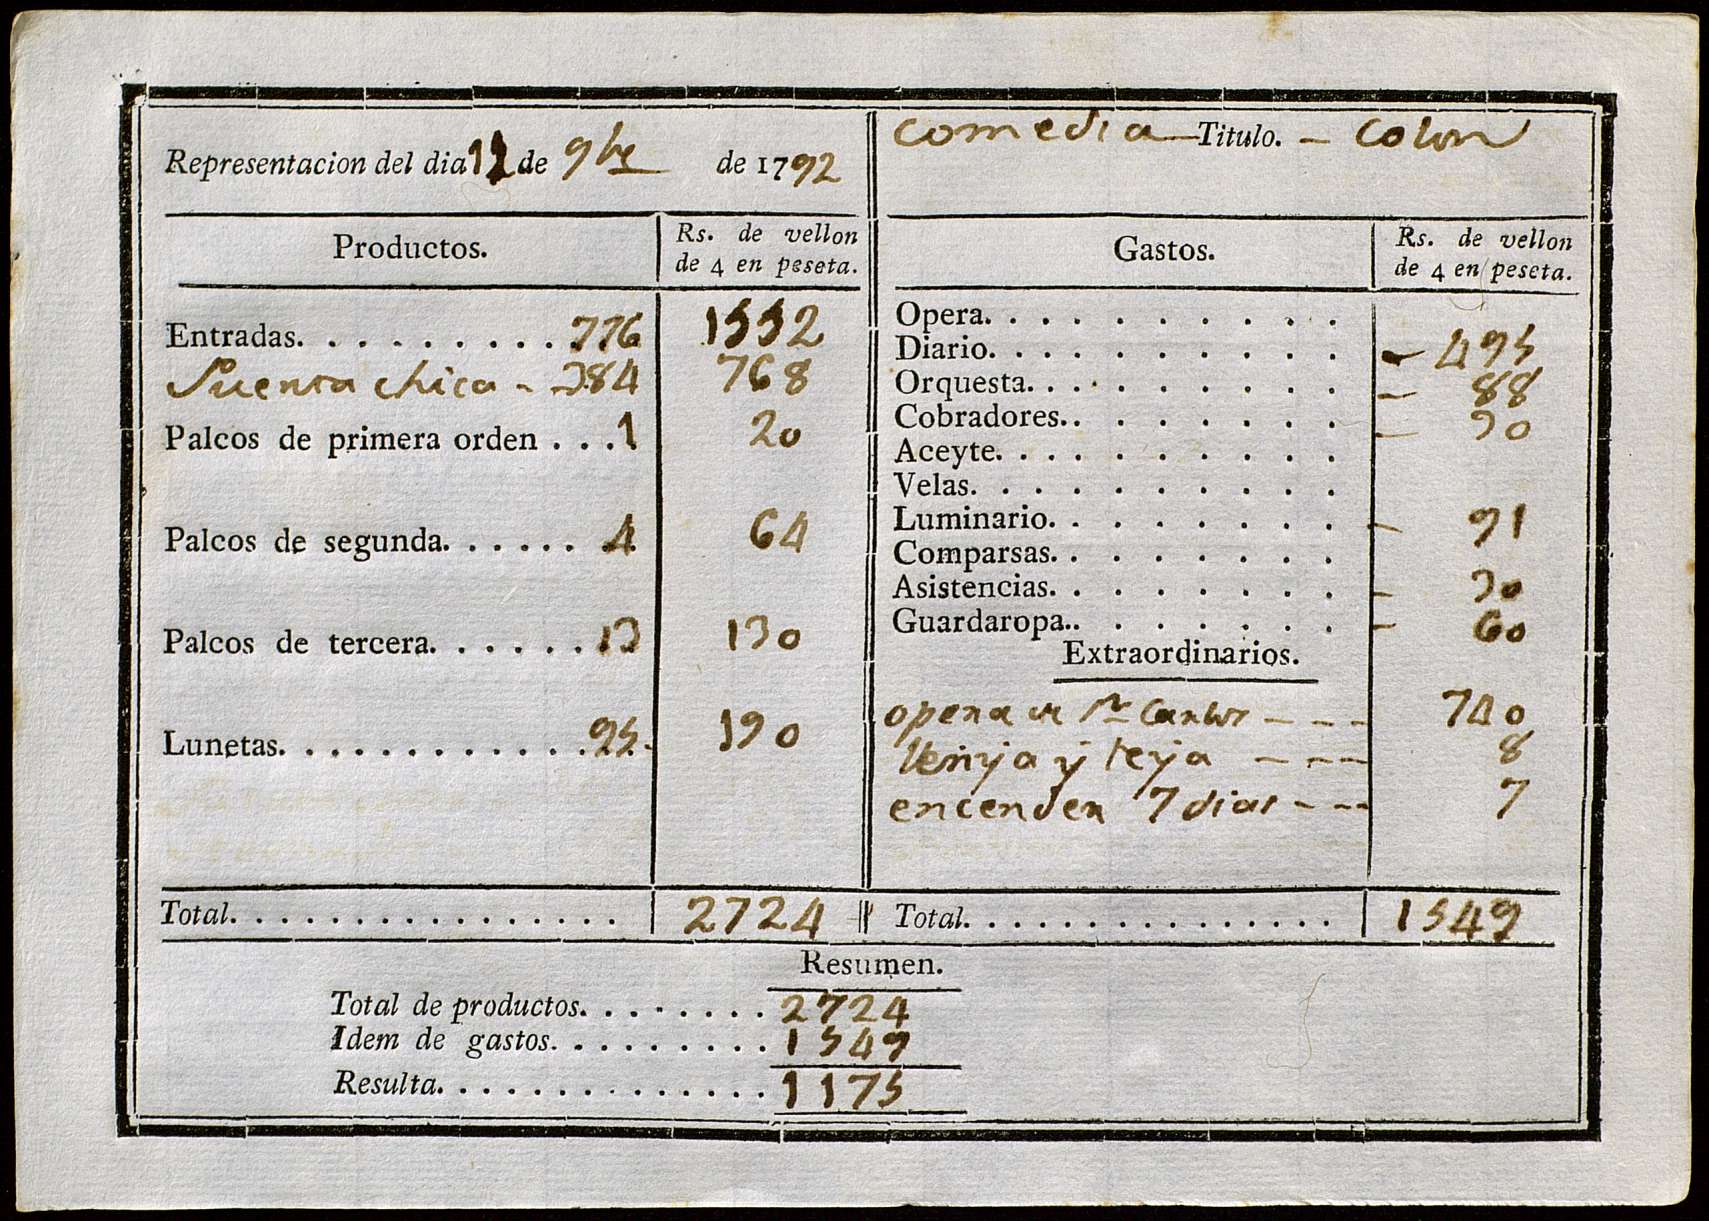 Representacion del dia de 9bre de 1792
Comedia Titulo. - Colon
Productos. Rs. de vellon de 4 en peseta.
Entradas. . . . . . . . . . 776 1552
Puerta chica - 384 768
Palcos de primera orden . . . 1 20
Palcos de segunda. . . . . . 4 64
Palcos de tercera. . . . . . 13 130
Lunetas. . . . . . . . . . . . . 95 190
Total. . . . . . . . . . . . . . . . 2724
Gastos. Rs. de vellon de 4 en peseta.
Opera. . . . . . . . . . .
Diario. . . . . . . . . . . - 495
Orquesta. . . . . . . . . . - 88
Cobradores.. . . . . . . . - 30
Aceyte. . . . . . . . . . .
Velas. . . . . . . . . . .
Luminario. . . . . . . . - 91
Comparsas. . . . . . . .
Asistencias. . . . . . . . - 30
Guardaropa.. . . . . . . - 60
Extraordinarios.
opera de Sn Carlos - - - 740
y teja - - - 8
encender 7 dias - - - 7
Total. . . . . . . . . . . . . . . . 1549
Resumen.
Total de productos. . . . . . . . 2724
Idem de gastos. . . . . . . . . 1549
Resulta. . . . . . . . . . . . . . 1175